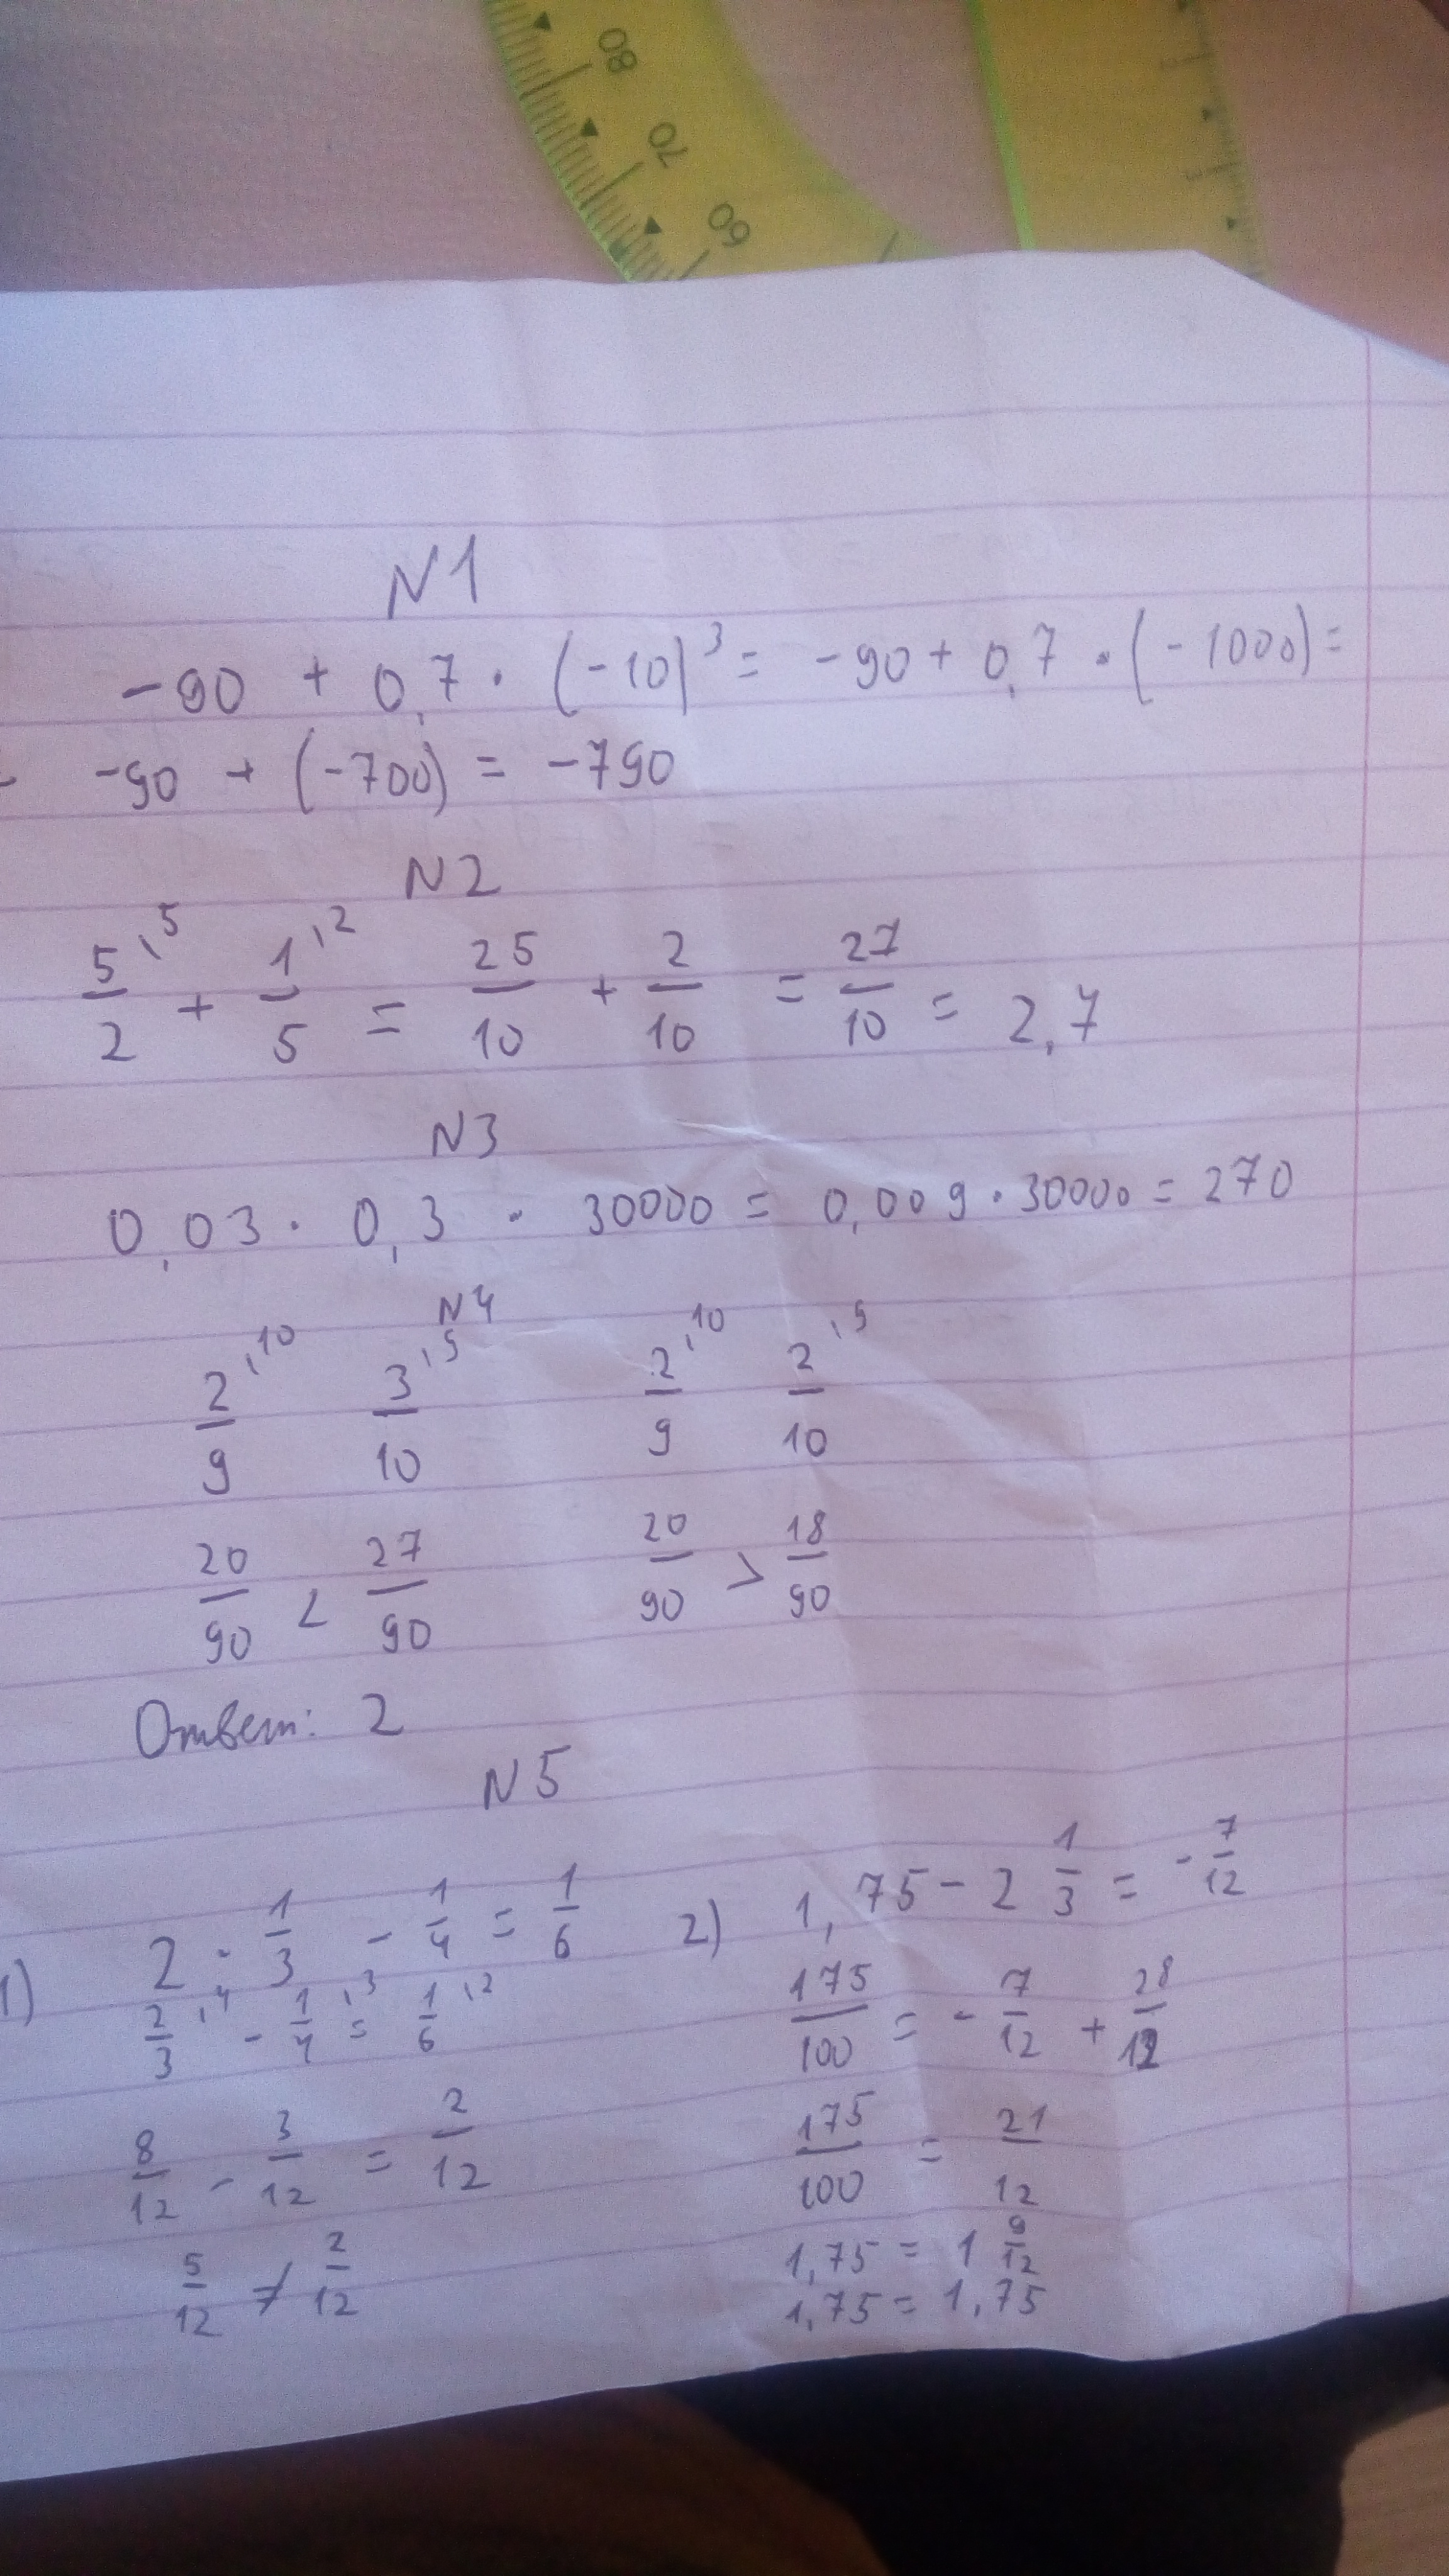 80
70
60
N1
-90 + 0,7 · (-10)³ = -90 + 0,7 · (-1000) =
- -90 + (-700) = -790
N2
5/2 \5 + 1/5 \2 = 25/10 + 2/10 = 27/10 = 2,7
N3
0,03 · 0,3 · 30000 = 0,009 · 30000 = 270
N4
2/9 \10 3/10 \9 2/9 \10 2/10 \9
20/90 < 27/90 20/90 > 18/90
Ответ: 2
N5
1) 2 · 1/3 - 1/4 = 1/6
2/3 \4 - 1/4 \3 = 1/6 \2
8/12 - 3/12 = 2/12
5/12 ≠ 2/12
2) 1,75 - 2 1/3 = - 7/12
175/100 = - 7/12 + 28/12
175/100 = 21/12
1,75 = 1 9/12
1,75 = 1,75